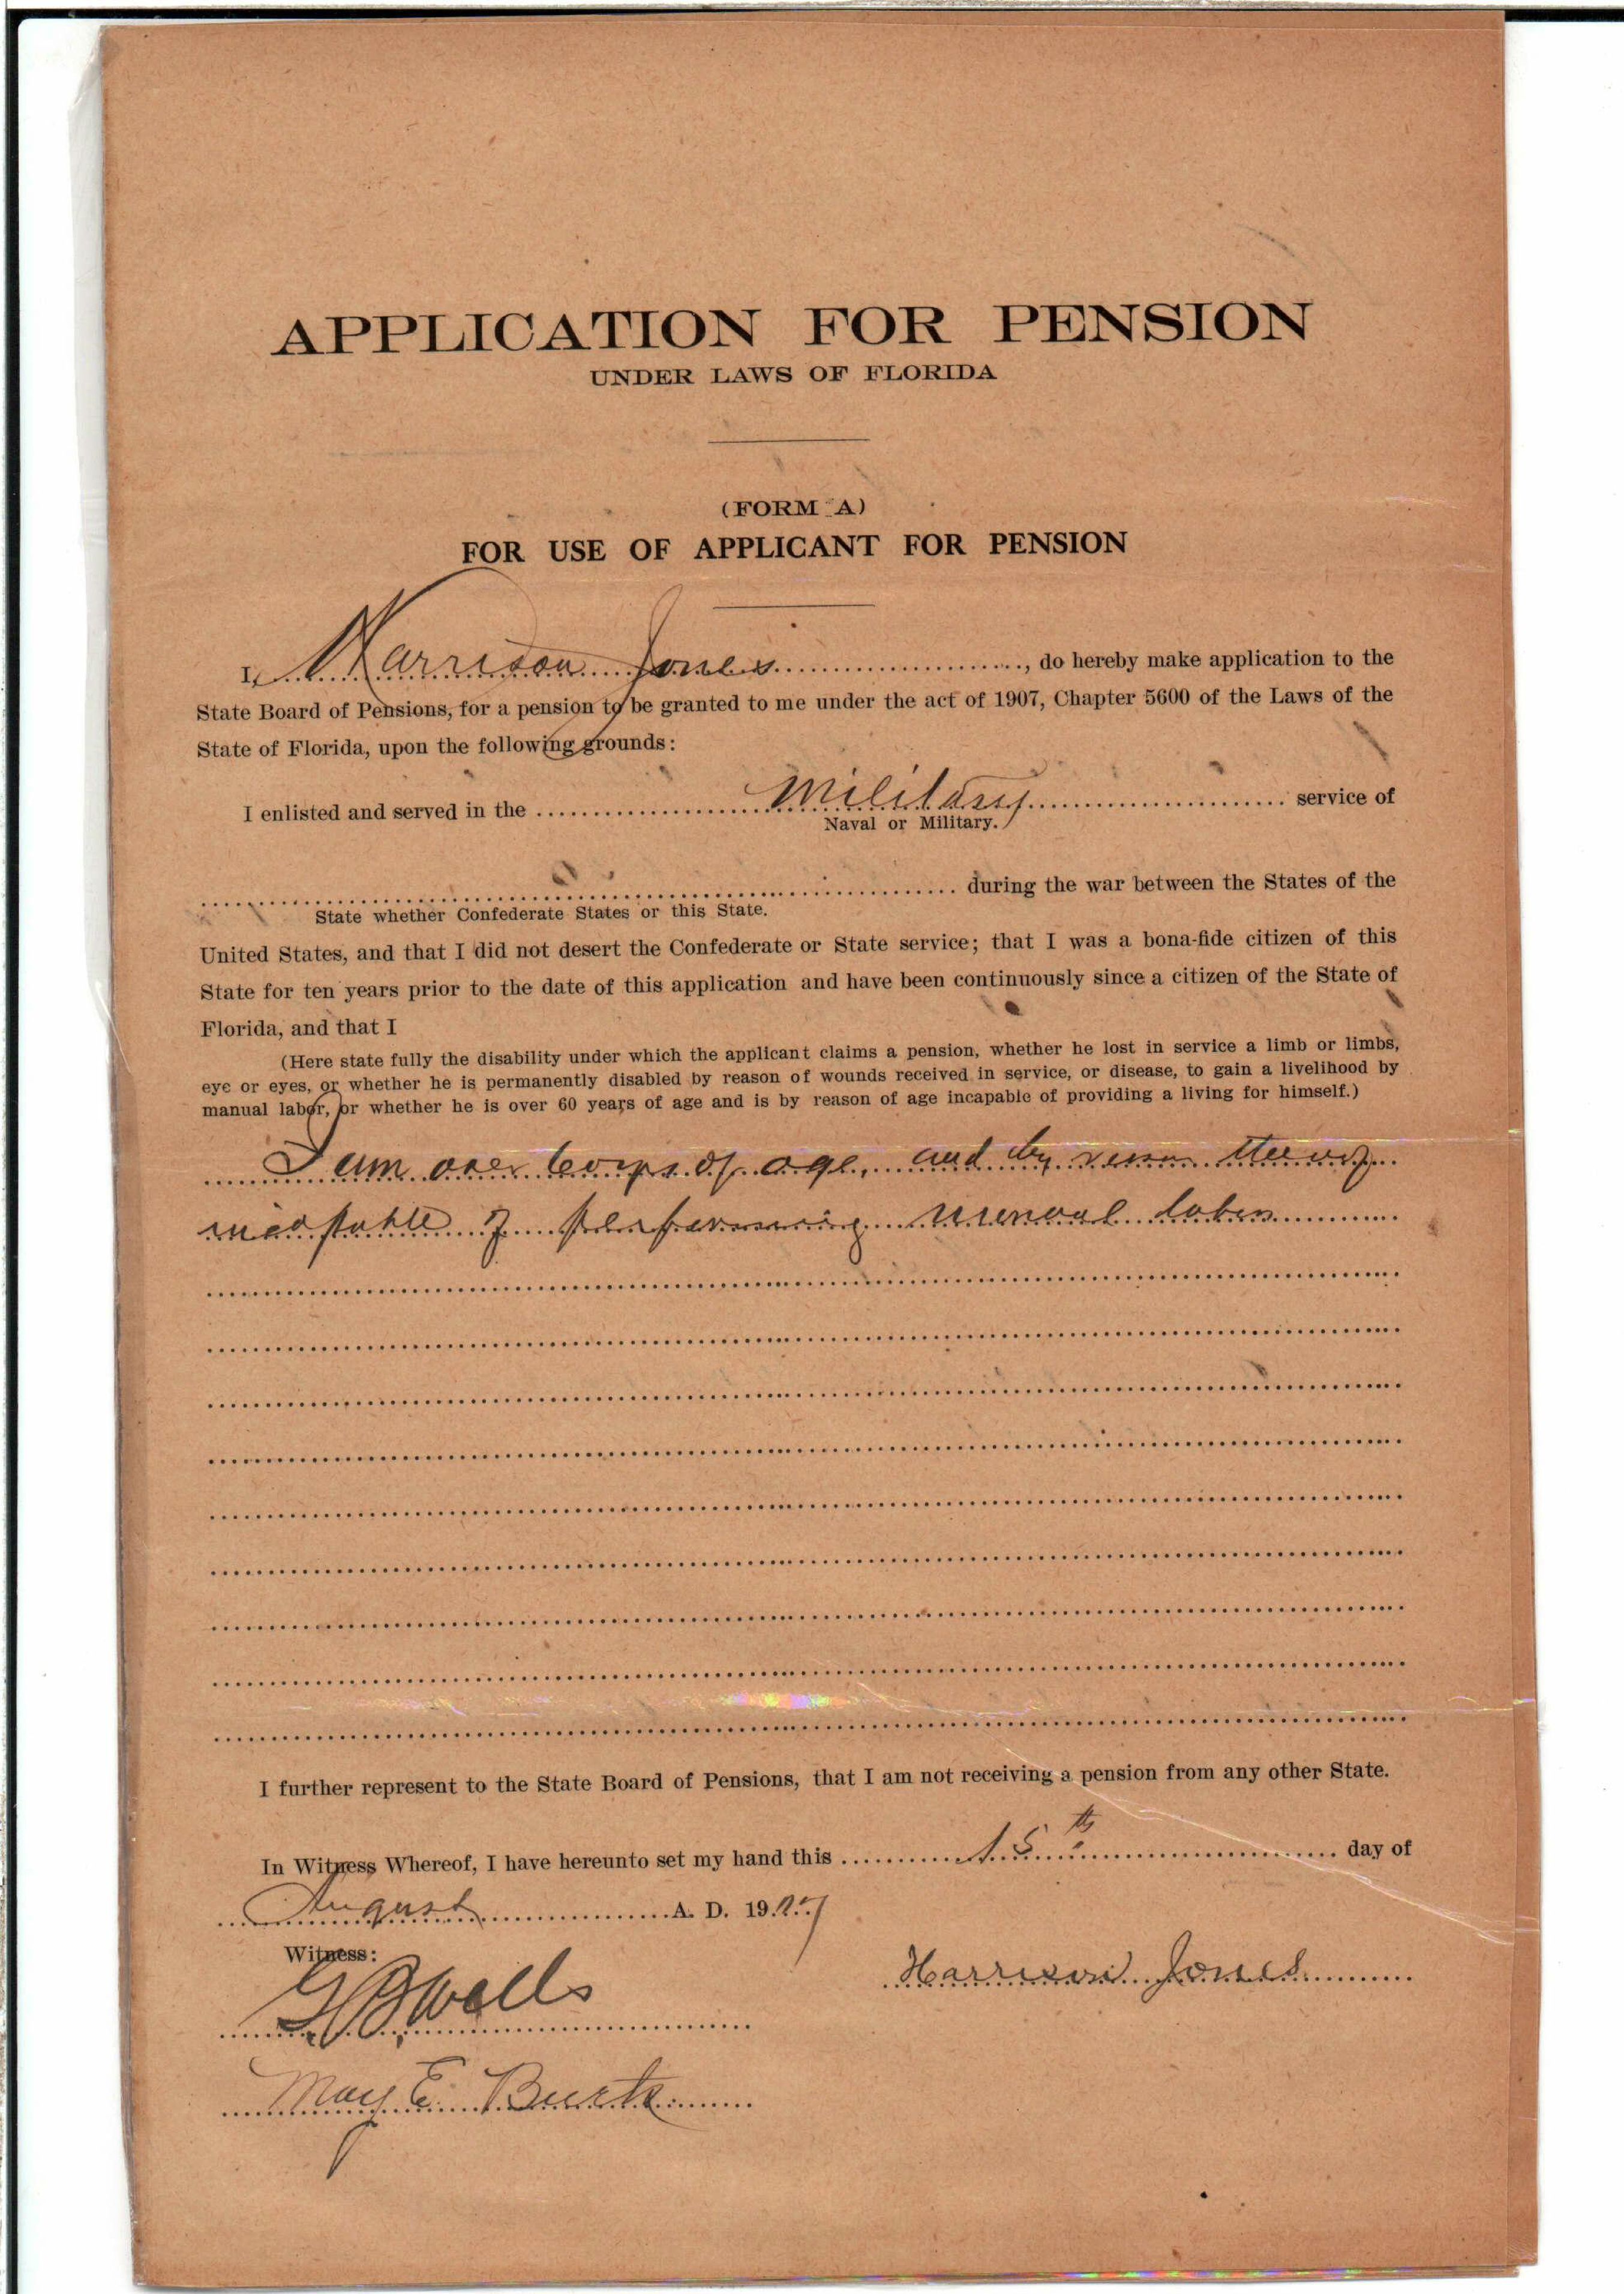 APPLICATION FOR PENSION
UNDER LAWS OF FLORIDA
(FORM A)
FOR USE OF APPLICANT FOR PENSION
I, Harrison Jones, do hereby make application to the
State Board of Pensions, for a pension to be granted to me under the act of 1907, Chapter 5600 of the Laws of the
State of Florida, upon the following grounds:
I enlisted and served in the Military service of
Naval or Military.
during the war between the States of the
State whether Confederate States or this State.
United States, and that I did not desert the Confederate or State service; that I was a bona-fide citizen of this
State for ten years prior to the date of this application and have been continuously since a citizen of the State of
Florida, and that I
(Here state fully the disability under which the applicant claims a pension, whether he lost in service a limb or limbs,
eye or eyes, or whether he is permanently disabled by reason of wounds received in service, or disease, to gain a livelihood by
manual labor, or whether he is over 60 years of age and is by reason of age incapable of providing a living for himself.)
I am over 60 yrs of age, and by reason thereof
incapable of performing manual labor
I further represent to the State Board of Pensions, that I am not receiving a pension from any other State.
In Witness Whereof, I have hereunto set my hand this 15th day of
August A. D. 1907
Witness:
Harrison Jones
G B Wells
May E. Burk